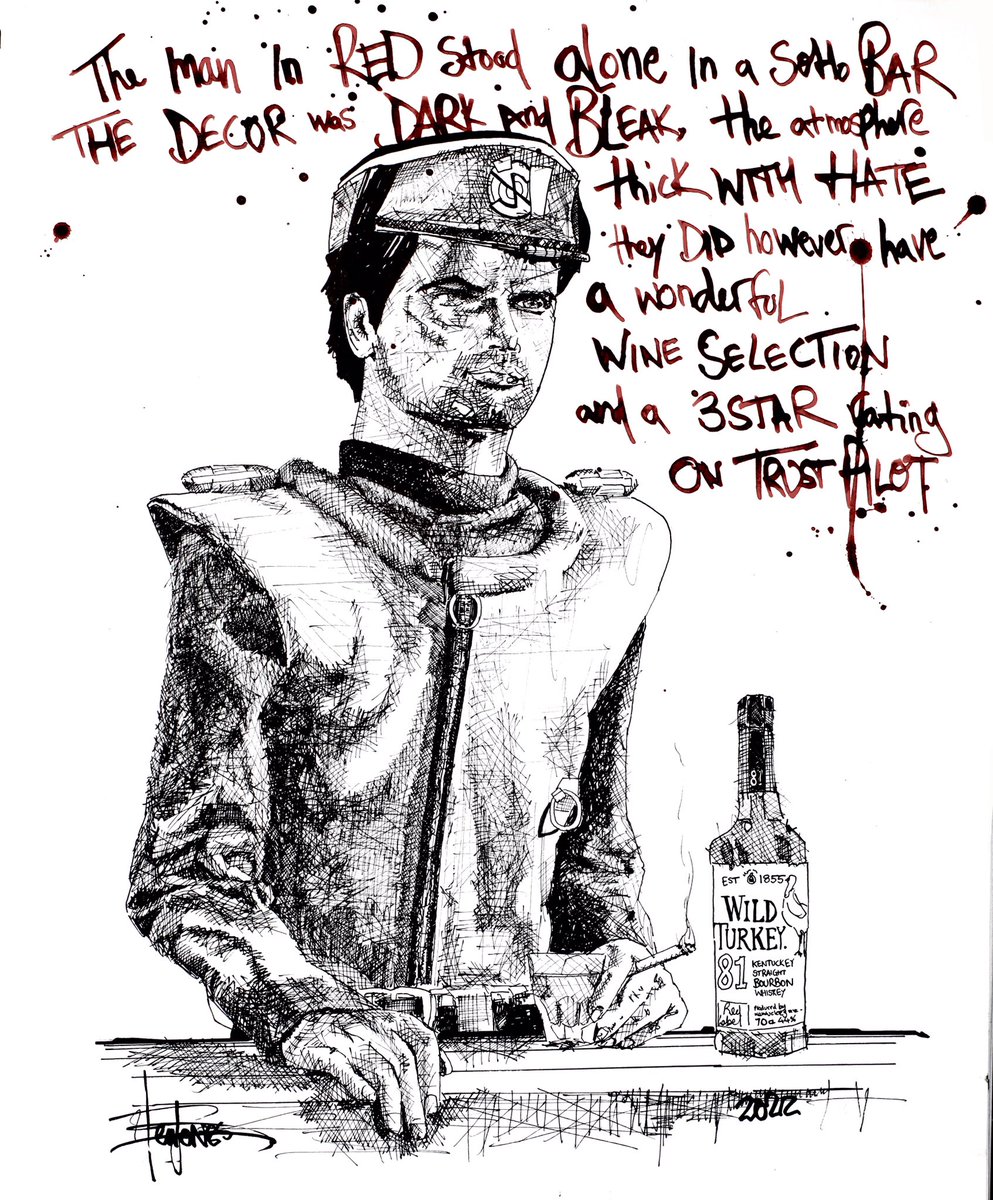 The man in RED stood alone in a Soho BAR
THE DECOR was DARK And BLEAK, the atmosphere
thick WITH HATE
they DiD however have
a wonderful
WINE SELECTION
and a 3 STAR rating
ON TRUST PILOT
81
EST 1855
WILD
TURKEY.
81 KENTUCKEY
STRAIGHT
BOURBON
WHISKEY
Red
Label
Produced by
70cl 44%
2022